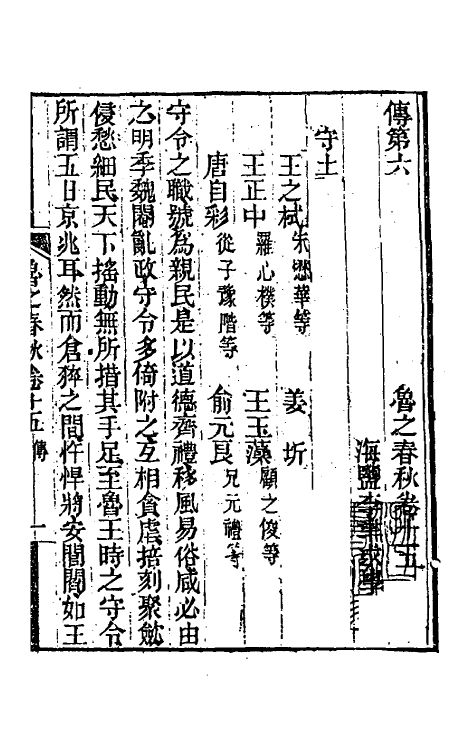 傳第六　　　　魯之春秋卷十五
海鹽李聿求學
守土
王之栻朱懋華等　姜圻
王正中羅心樸等　王玉藻顧之俊等
唐自彩從子豫階等　俞元良兄元禮等
守令之職號為親民是以道德齊禮移風易俗咸必由
之明季魏閹亂政守令多倚附之互相貪虐掊刻聚斂
侵愁細民天下搖動無所措其手足至魯王時之守令
所謂五日京兆耳然而倉猝之間忤悍將安閭閻如王
魯之春秋卷十五　傳　一